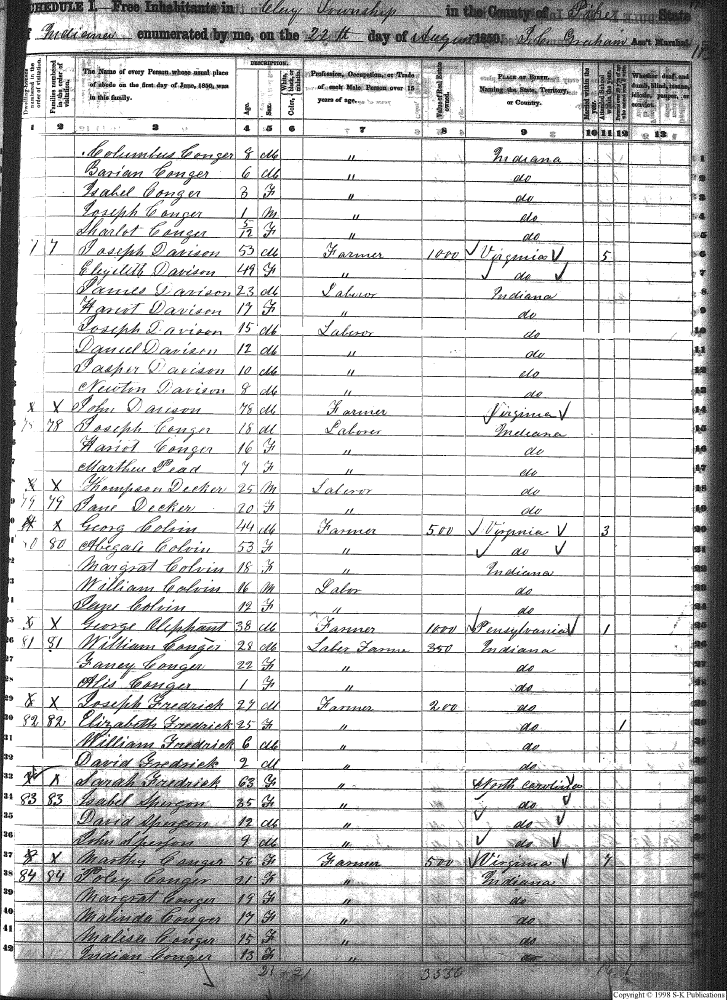 SCHEDULE I. Free Inhabitants in Clay Township in the County of Pike State
of Indiana enumerated by me, on the 22th day of August 1850. J. C. Graham Ass't Marshal.
DESCRIPTION.
Dwelling-houses numbered in the order of visitation.
Families numbered in the order of visitation.
The Name of every Person whose usual place of abode on the first day of June, 1850, was in this family.
Age.
Sex.
Color,
Profession, Occupation, or Trade of each Male Person over 15 years of age.
Value of Real Estate owned.
PLACE OF BIRTH. Naming the State, Territory, or Country.
Married within the year.
Whether deaf and dumb, blind,
1 2 3 4 5 6 7 8 9 10 11 12 13
Columbus Conger 8 M " Indiana 1
Garian Conger 6 M " do 2
Isabel Conger 3 F " do 3
Joseph Conger 1 M " do 4
Sharlot Conger 5/12 F " do 5
7 Joseph Davison 53 M Farmer 1000 Virginia 5 6
Elizebeth Davison 49 F " do 7
James Davison 23 M Laberor Indiana 8
Hariot Davison 17 F " do 9
Joseph Davison 15 M Laberor do 10
Daniel Davison 12 M " do 11
Jasper Davison 10 M " do 12
Newton Davison 8 M " do 13
X X John Davison 78 M Farmer Virginia 14
78 78 Joseph Conger 18 M Laberor Indiana 15
Hariot Conger 16 F " do 16
Marthew Pead 7 F " do 17
X X Thompson Decker 25 M Laberor do 18
79 79 Jane Decker 20 F " do 19
X X Georg Colvin 44 M Farmer 500 Virginia 3 20
80 80 Abegale Colvin 53 F " do 21
Margrat Colvin 18 F " Indiana 22
William Colvin 16 M Labor do 23
Jane Colvin 12 F " do 24
X X George Oliphant 38 M Farmer 1000 Pensylvania 1 25
81 81 William Conger 28 M Laber Farme 350 Indiana 26
Faney Conger 22 F " do 27
Alis Conger 1 F " do 28
X X Joseph Fredrick 27 M Farmer 200 do 29
82 82 Elizabeth Fredrick 25 F " do 1 30
William Fredrick 6 M " do 31
David Fredrick 2 M " do 32
X X Sarah Fredrick 63 F " North carolina 33
83 83 Isabel Spurgon 35 F " do 34
David Spurgon 12 M " do 35
John Spurgon 9 M " do 36
X X Marthy Conger 56 F Farmer 500 Virginia 7 37
84 84 Poley Conger 21 F " Indiana 38
Margrat Conger 19 F " do 39
Malinda Conger 17 F " do 40
Malisa Conger 15 F " do 41
Indian Conger 13 F " do 42
21 21
Copyright © 1998 S-K Publications